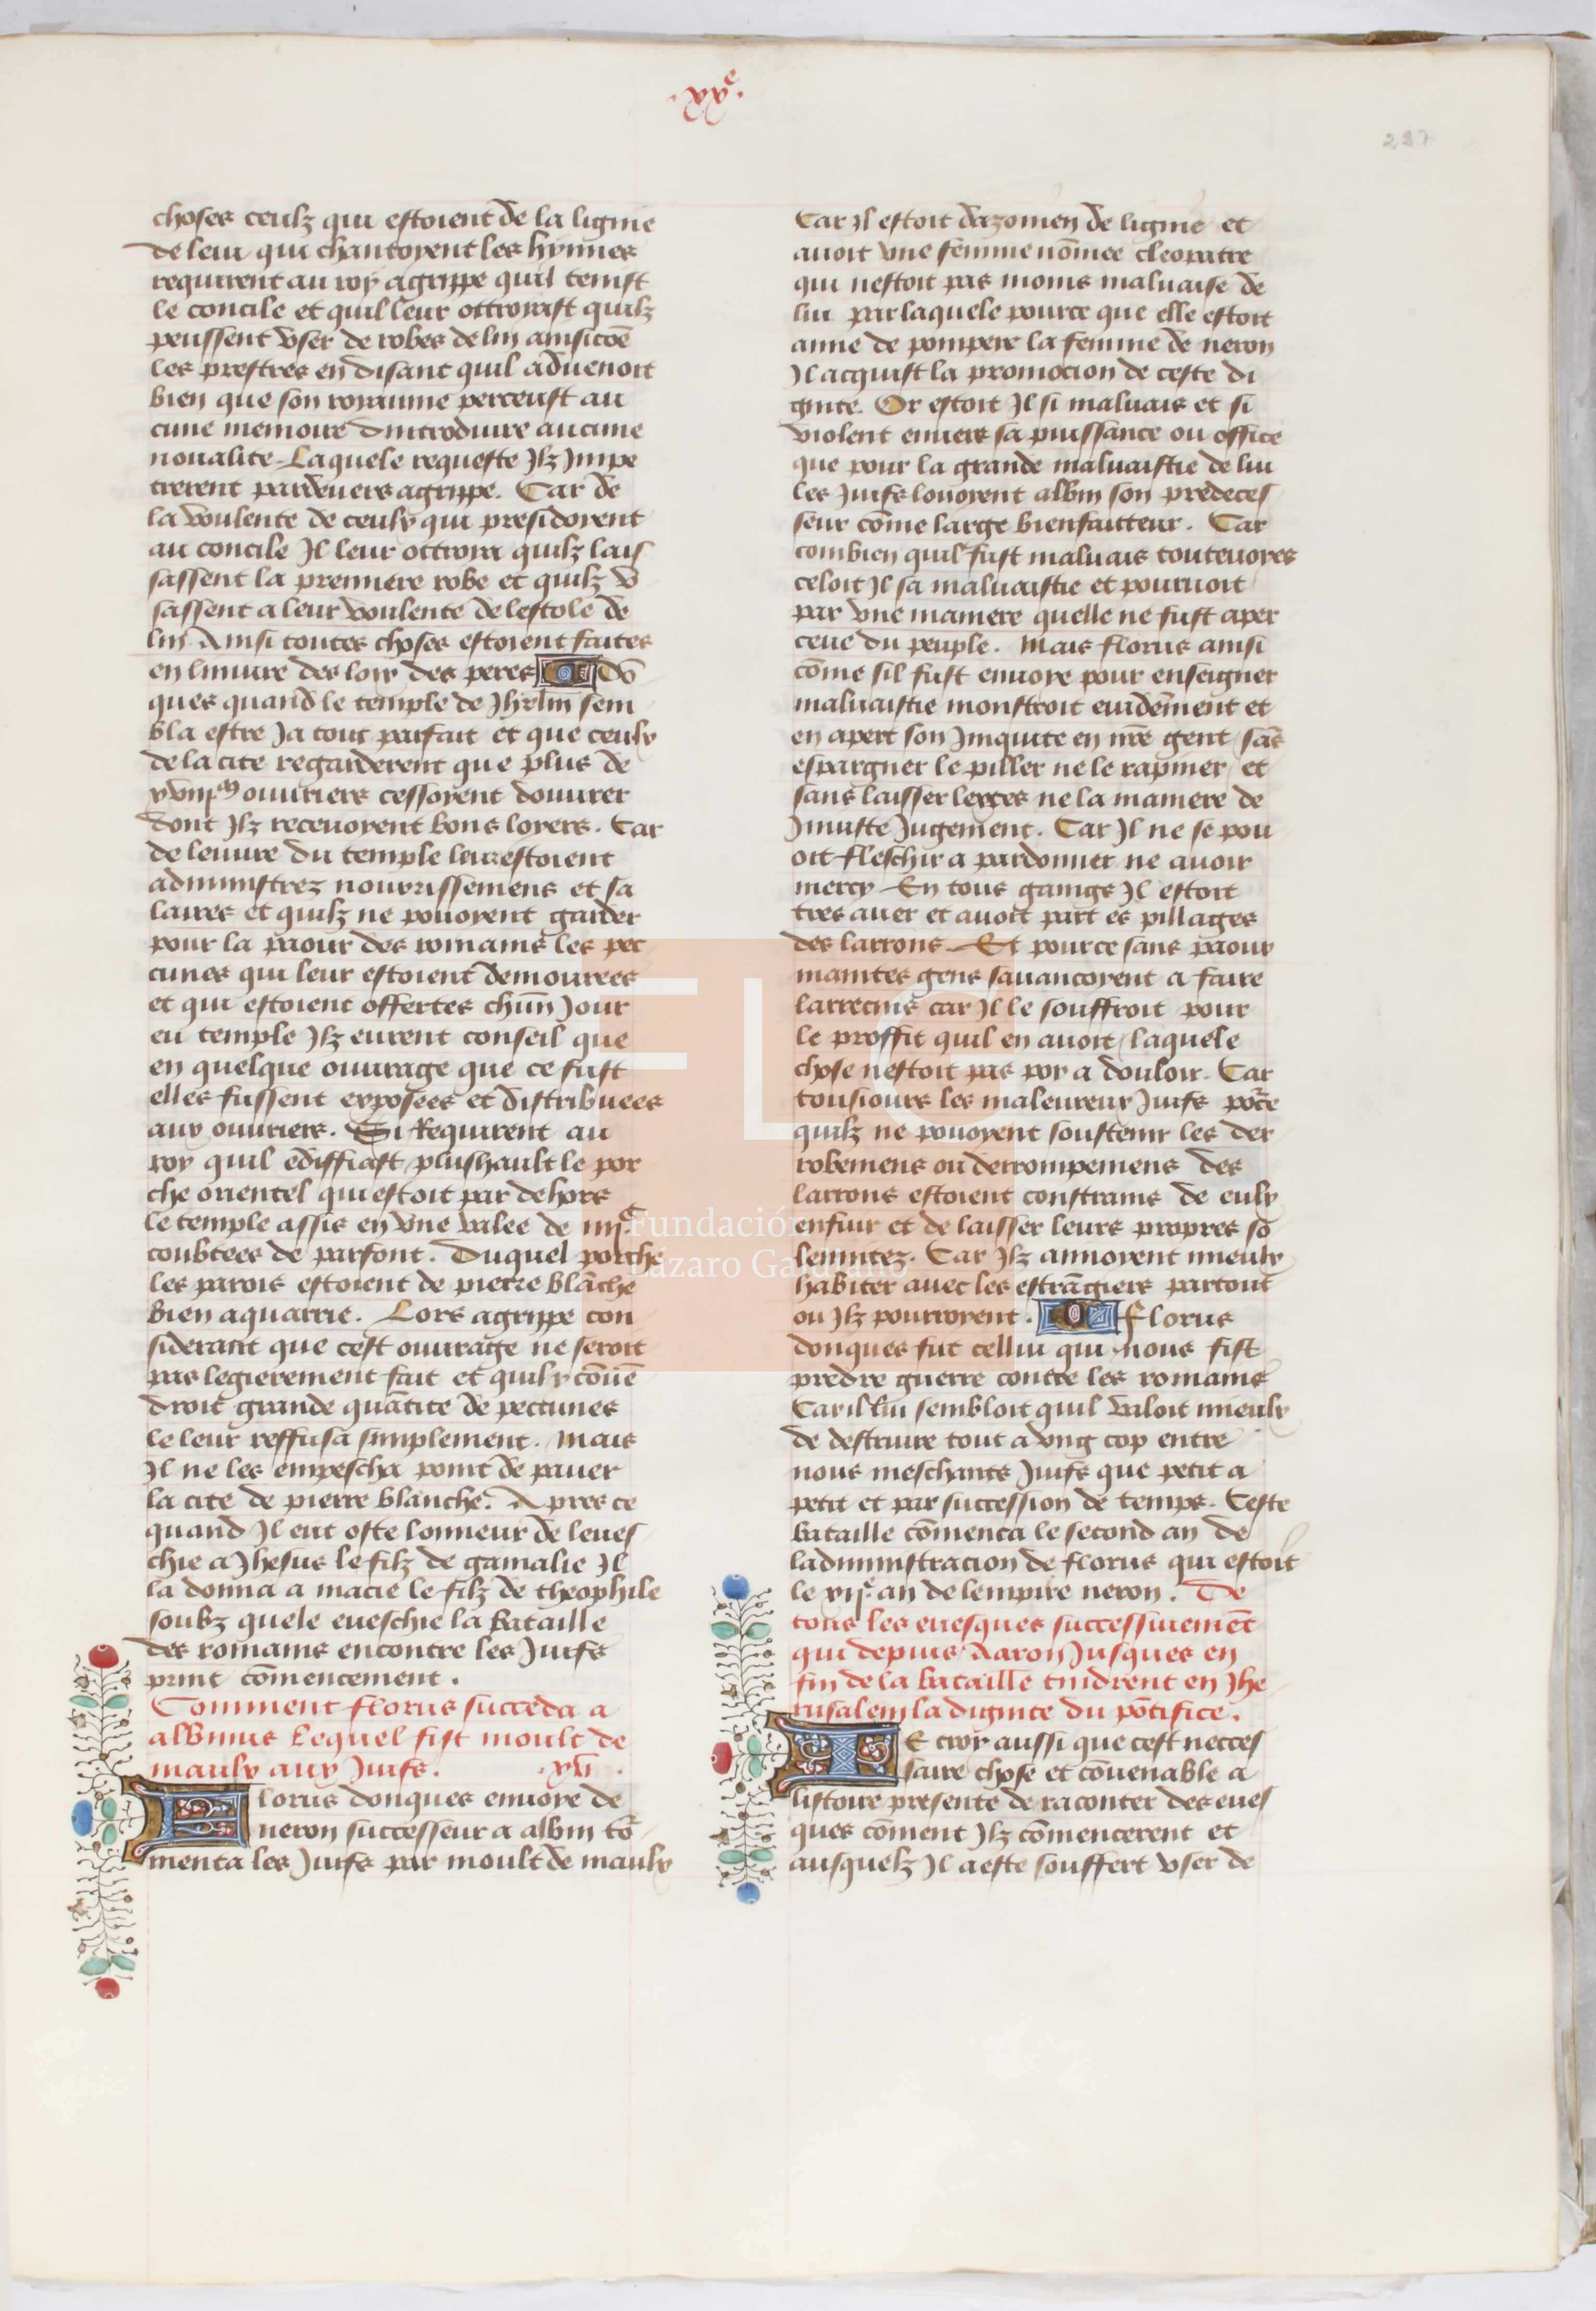 .xxe.
297
choses ceulz qui estoient de la lignie
de leui qui chantoyent les hymnes
requirent au roy agrippe quil tenist
le concile et quil leur ottroyast quilz
peussent vser de robes de lin ainsi cōe
les prestres en disant quil aduenoit
bien que son royaume perceust au
cune memoire dintroduire aucune
noualite. Laquele requeste Jlz Jmpe
trerent pardeuers agrippe. Car de
la voulente de ceulx qui presidoyent
au concile Jl leur ottroia quilz lais
sassent la premiere robe et quilz v
sassent a leur voulente de lestole de
lin Ainsi toutes choses estoient faites
en liniure des loix des peres Dō
ques quand le temple de Jhrlm sem
bla estre Ja tout parfait et que ceulx
de la cite regarderent que plus de
xviijM ouuriers cessoyent douurer
dont Jlz receuoyent bons loyers. Car
de leuure du temple leur estoient
administrez nourrissemens et sa
laires et quilz ne pouoyent garder
pour la paour des romains les pec
cunes qui leur estoient demourees
et qui estoient offertes chūn Jour
eu temple Jlz eurent conseil que
en quelque ouurage que ce fust
elles fussent exposees et distribuees
aux ouuriers. Si Requirent au
roy quil ediffiast plushault le por
che orientel qui estoit par dehors
le temple assis en vne valee de iiijC
coubtees de parfont. Duquel porche
les parois estoient de pierre blāche
bien aquarrie. Lors agrippe con
siderant que cest ouurage ne seroit
pas legierement fait et quilx cōuē
droit grande quātite de peccunes
le leur reffusa simplement. Mais
Jl ne les empescha point de pauer
la cite de pierre blanche. Apres ce
quand Jl eut oste lonneur de leues
chie a Jhesus le filz de gamalie Jl
la donna a macie le filz de theophile
soubz quele eueschie la bataille
des romains encontre les Juifs
print cōmencement.
Comment florus succeda a
albinus Lequel fist moult de
maulx aux Juifs. .xii.
Florus donques enuoye de
neron successeur a albin tō
menta les Juifs par moult de maulx
Car Jl estoit dazomen de lignie et
auoit vne femme nōmee cleopatre
qui nestoit pas moins maluaise de
lui par laquele pource que elle estoit
amie de pompeie la femme de neron
Jl acquist la promocion de ceste di
gnite. Or estoit Jl si maluais et si
violent enuers sa puissance ou office
que pour la grande maluaistie de lui
les Juifs louoyent albin son predeces
seur cōme large bienfaitteur. Car
combien quil fust maluais touteuoyes
celoit Jl sa maluaistie et pouruoit
par vne maniere quelle ne fust aper
ceue du peuple. Mais florus ainsi
cōme sil fust enuoye pour enseigner
maluaistie monstroit euidēment et
en apert son Jniquite en nr̄e gent sās
espargner le piller ne le rapiner et
sans laisser lexces ne la maniere de
Jniuste Jugement. Car Jl ne se pou
oit fleschir a pardonner ne auoir
mercy En tous gainge Jl estoit
tres auer et auoit part es pillages
des larrons. Et pource sans paour
maintes gens sauancoyent a faire
larrecins car Jl le souffroit pour
le proffit quil en auoit laquele
chose nestoit pas poy a douloir. Car
tousiours les maleureux Juifs pōrce
quilz ne pouoyent soustenir les der
robemens ou derrompemens des
larrons estoient constrains de eulx
enfuir et de laisser leurs propres so
lennitez. Car Jlz amoyent mieulx
habiter auec les estrāgiers partout
ou Jlz pourroyent. florus
donques fut cellui qui nous fist
predre guerre contre les romains
Car il lui sembloit quil valoit mieulx
de destruire tout a vng cop entre
nous meschants Juifs que petit a
petit et par succession de temps. Ceste
bataille cōmenca le second an de
ladministracion de florus qui estoit
le xije an de lempire neron. De
tous les euesques successiuemēt
qui depuis Aaron Jusques en
fin de la bataille tindrent en Jhe
rusalem la dignite du pōtifice.
IE croy aussi que cest necces
saire chose et cōuenable a
listoire presente de raconter des eues
ques cōment Jlz cōmencerent et
ausquelz Jl a este souffert vser de
Fundación
Lázaro Galdiano